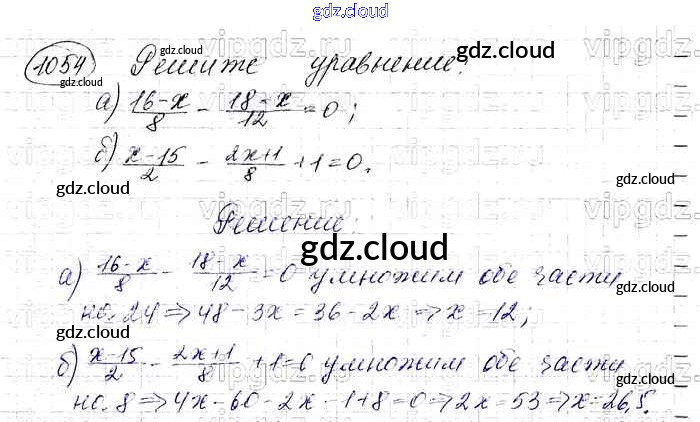 gdz.cloud
1054 Решите уравнение:
gdz.cloud
а) (16-x)/8 - (18-x)/12 = 0;
gdz.cloud
б) (x-15)/2 - (2x+1)/8 + 1 = 0.
gdz.cloud
Решение:
gdz.cloud
а) (16-x)/8 - (18-x)/12 = 0 умножим обе части
gdz.cloud
на 24 ⇒ 48 - 3x = 36 - 2x ⇒ x = 12;
gdz.cloud
б) (x-15)/2 - (2x+1)/8 + 1 = 0 умножим обе части
gdz.cloud
на 8 ⇒ 4x - 60 - 2x - 1 + 8 = 0 ⇒ 2x = 53 ⇒ x = 26,5.
gdz.cloud